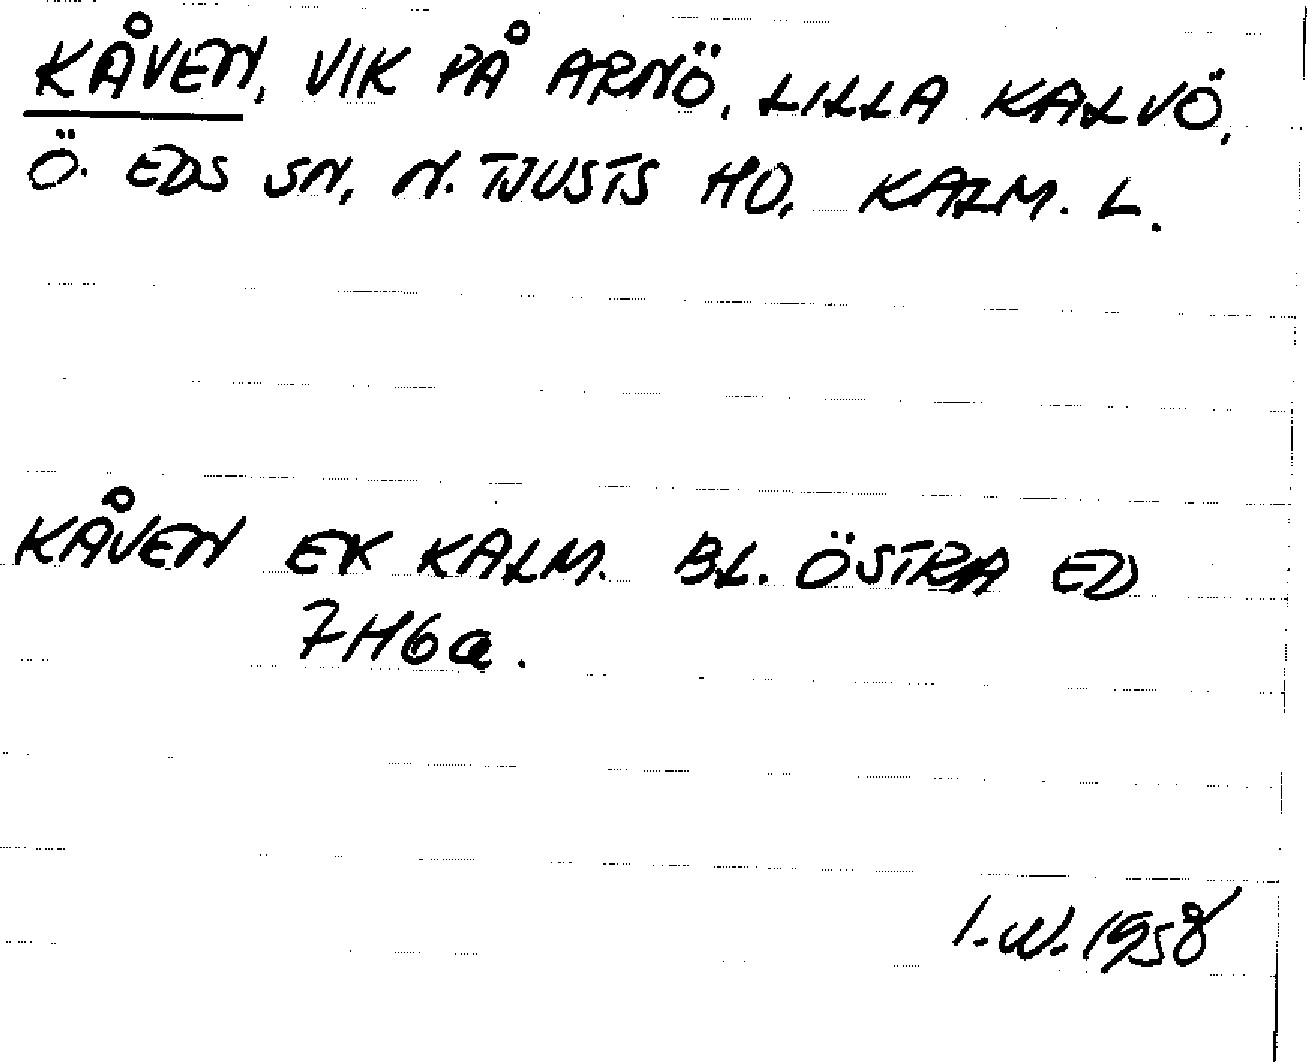 KÅVEN, VIK PÅ ARNÖ, LILLA KALVÖ,
Ö. EDS SN, N. TJUSTS HD, KALM. L.
KÅVEN EK KALM. BL. ÖSTRA ED
7H6a.
I.W. 1958